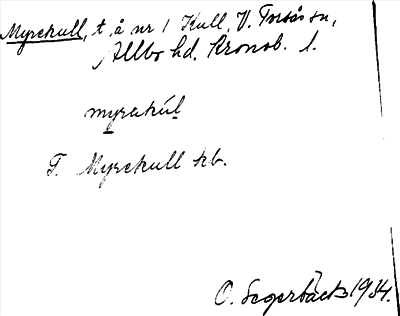 Myrekull, t. å nr 1 Kull, V. Torsås sn,
Allbo hd. Kronob. l.
myrakúl
T. Myrekull kb.
O. Segerbäck 1934.